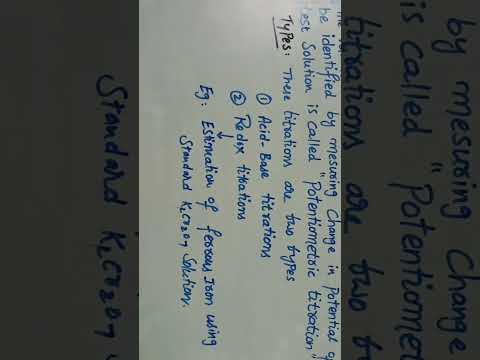 be identified by mesuring Change in Potential of
test Solution is called "Potentiometric titration"
Types: These titrations are two types
① Acid-Base titrations
② Redox titrations
Eg: Estimation of ferrous Iron using
Standard K2Cr2O7 Solution.
by mesuring Change
is called "Potentiomet
titrations are two
Standard K2Cr2O7